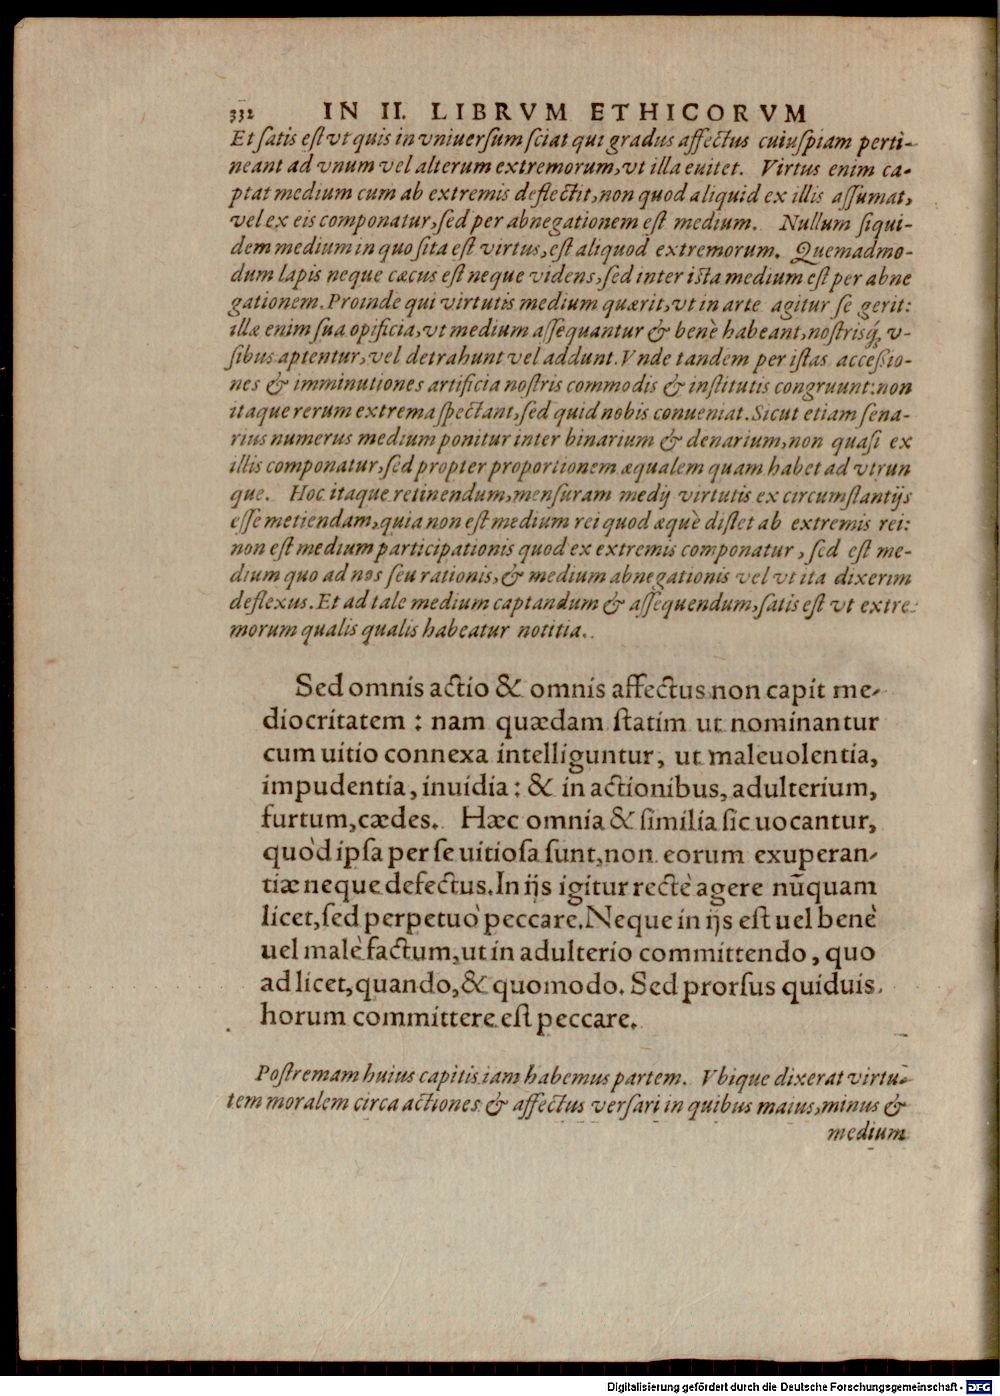 332 IN II. LIBRVM ETHICORVM
Et ſatis eſt vt quis in vniuerſum ſciat qui gradus affectus cuiuſpiam perti-
neant ad vnum vel alterum extremorum, vt illa euitet. Virtus enim ca-
ptat medium cum ab extremis deflectit, non quod aliquid ex illis aſſumat,
vel ex eis componatur, ſed per abnegationem eſt medium. Nullum ſiqui-
dem medium in quo ſita eſt virtus, eſt aliquod extremorum. Quemadmo-
dum lapis neque cæcus eſt neque videns, ſed inter iſta medium eſt per abne
gationem. Proinde qui virtutis medium quærit, vt in arte agitur ſe gerit:
illæ enim ſua opificia, vt medium aſſequantur & benè habeant, noſtrisq́; v-
ſibus aptentur, vel detrahunt vel addunt. Vnde tandem per iſtas acceßio-
nes & imminutiones artificia noſtris commodis & inſtitutis congruunt: non
itaque rerum extrema ſpectant, ſed quid nobis conueniat. Sicut etiam ſena-
rius numerus medium ponitur inter binarium & denarium, non quaſi ex
illis componatur, ſed propter proportionem æqualem quam habet ad vtrun
que. Hoc itaque retinendum, menſuram medij virtutis ex circumſtantijs
eſſe metiendam, quia non eſt medium rei quod æquè diſtet ab extremis rei:
non eſt medium participationis quod ex extremis componatur, ſed eſt me-
dium quo ad nos ſeu rationis, & medium abnegationis vel vt ita dixerim
deflexus. Et ad tale medium captandum & aſſequendum, ſatis eſt vt extre-
morum qualis qualis habeatur notitia.
Sed omnis actio & omnis affectus non capit me-
diocritatem: nam quædam ſtatim ut nominantur
cum uitio connexa intelliguntur, ut maleuolentia,
impudentia, inuidia: & in actionibus, adulterium,
furtum, cædes. Hæc omnia & ſimilia ſic uocantur,
quòd ipſa per ſe uitioſa ſunt, non eorum exuperan-
tiæ neque defectus. In ijs igitur rectè agere nūquam
licet, ſed perpetuò peccare. Neque in ijs eſt uel benè
uel malè factum, ut in adulterio committendo, quo
ad licet, quando, & quomodo. Sed prorſus quiduis
horum committere eſt peccare.
Poſtremam huius capitis iam habemus partem. Vbique dixerat virtu-
tem moralem circa actiones & affectus verſari in quibus maius, minus &
medium
Digitalisierung gefördert durch die Deutsche Forschungsgemeinschaft - DFG